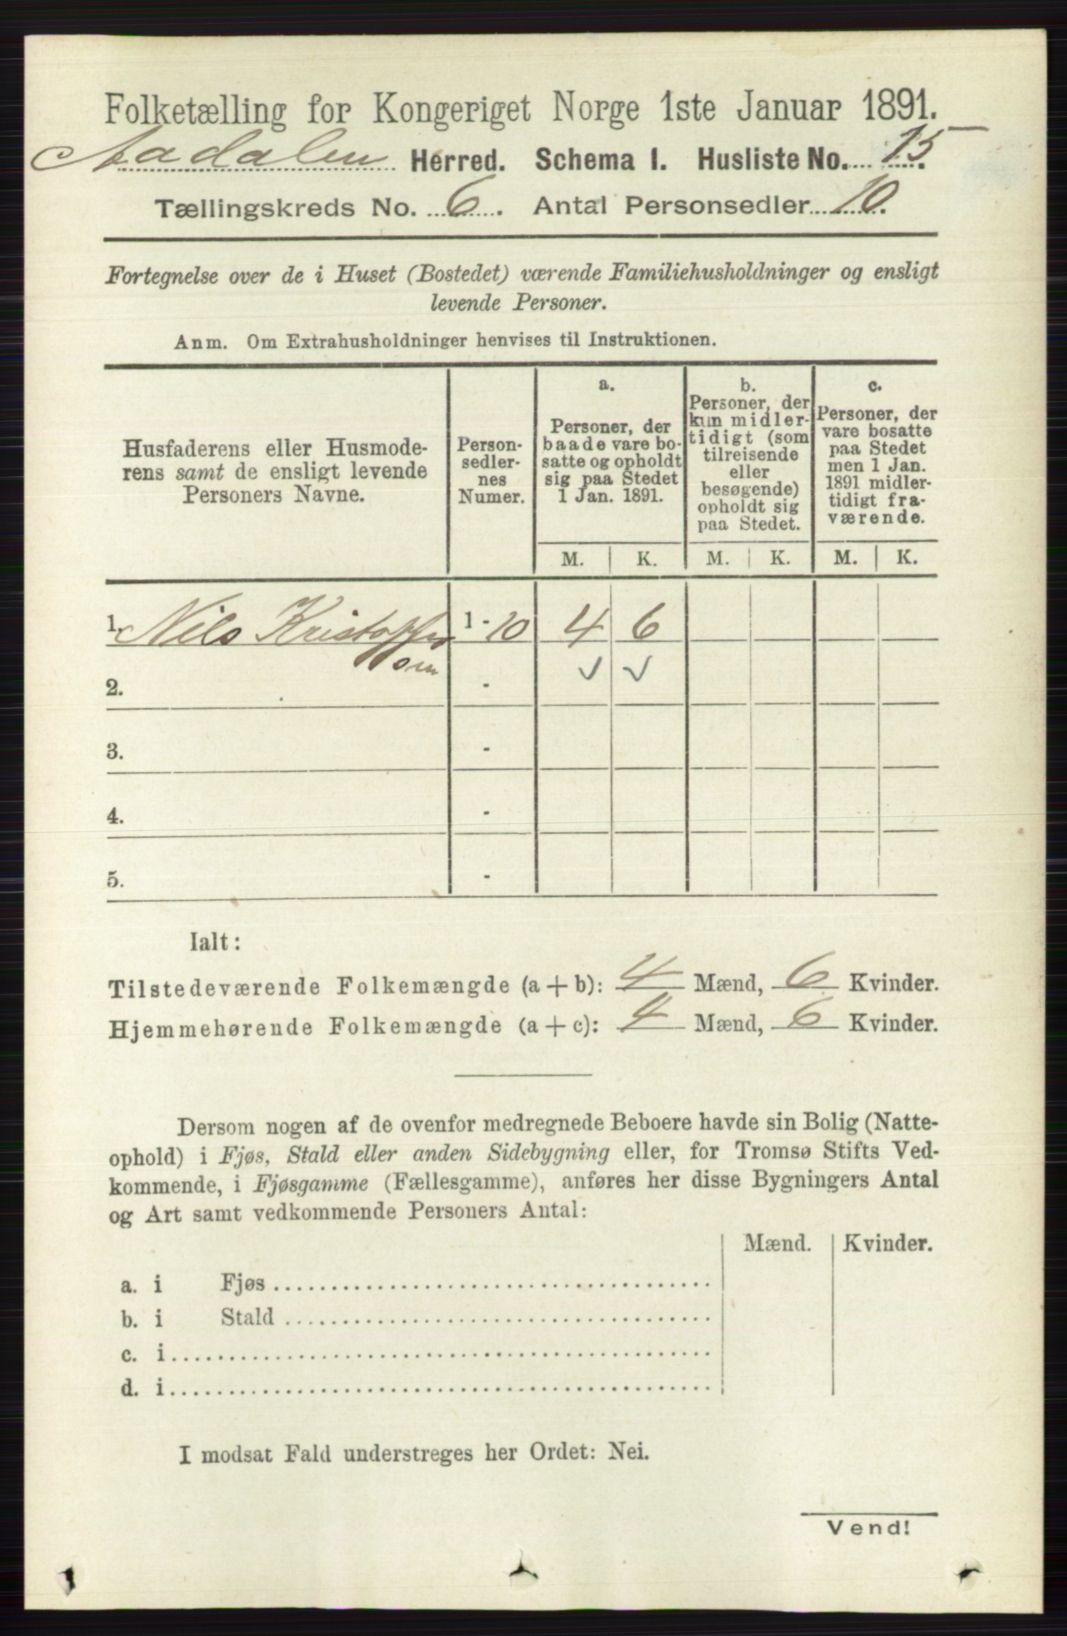 Folketælling for Kongeriget Norge 1ste Januar 1891.
Aadalen Herred. Schema I. Husliste No. 15.
Tællingskreds No. 6. Antal Personsedler 10.
Fortegnelse over de i Huset (Bostedet) værende Familiehusholdninger og ensligt
levende Personer.
Anm. Om Extrahusholdninger henvises til Instruktionen.
Husfaderens eller Husmode-
rens samt de ensligt levende
Personers Navne.
Person-
sedler-
nes
Numer.
a.
Personer, der
baade vare bo-
satte og opholdt
sig paa Stedet
1 Jan. 1891.
b.
Personer, der
kun midler-
tidigt (som
tilreisende
eller
besøgende)
opholdt sig
paa Stedet.
c.
Personer, der
vare bosatte
paa Stedet
men 1 Jan.
1891 midler-
tidigt fra-
værende.
M. K. M. K. M. K.
1. Nils Kristoffer 1 - 10 4 6
sen
2. - ✓ ✓
3. -
4. -
5. -
Ialt:
Tilstedeværende Folkemængde (a + b): 4 Mænd, 6 Kvinder.
Hjemmehørende Folkemængde (a + c): 4 Mænd, 6 Kvinder.
Dersom nogen af de ovenfor medregnede Beboere havde sin Bolig (Natte-
ophold) i Fjøs, Stald eller anden Sidebygning eller, for Tromsø Stifts Ved-
kommende, i Fjøsgamme (Fællesgamme), anføres her disse Bygningers Antal
og Art samt vedkommende Personers Antal:
Mænd. Kvinder.
a. i Fjøs
b. i Stald
c. i
d. i
I modsat Fald understreges her Ordet: Nei.
Vend!